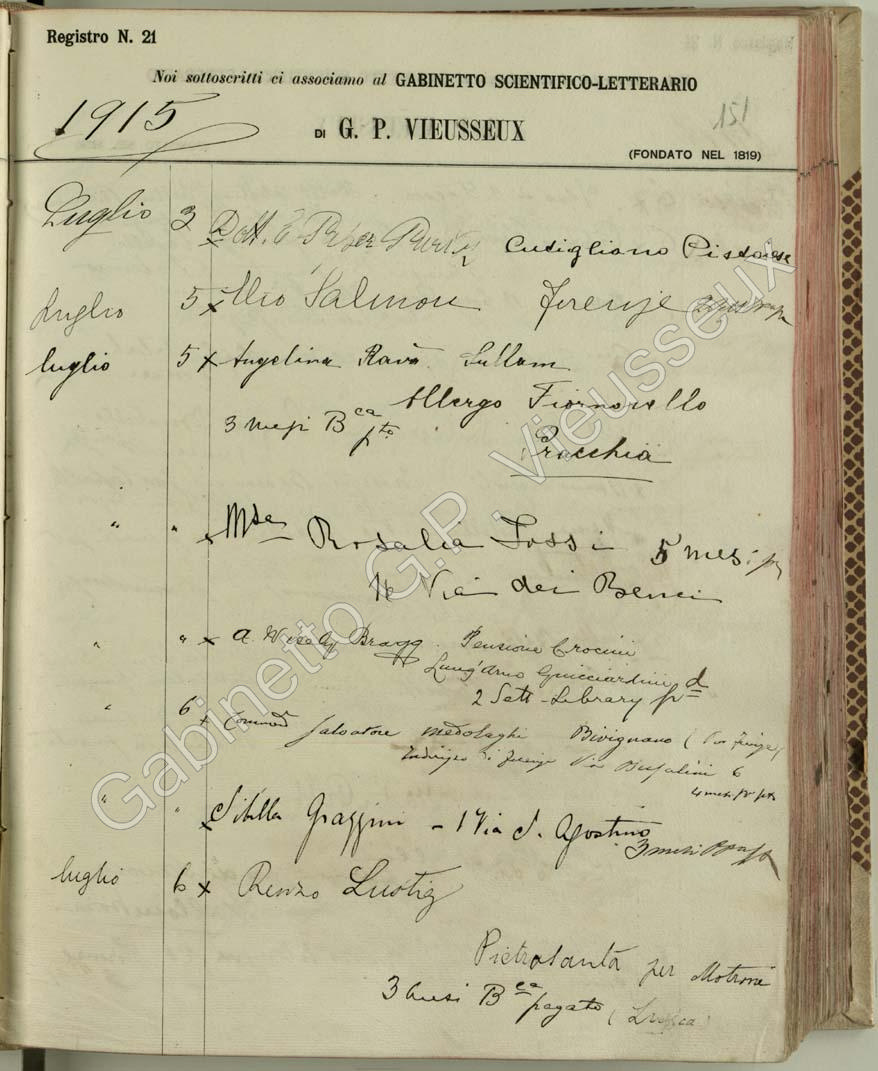 Registro N. 21
Noi sottoscritti ci associamo al GABINETTO SCIENTIFICO-LETTERARIO
1915
151
DI G. P. VIEUSSEUX
(FONDATO NEL 1819)
Luglio 3 Dott. E. Cutigliano Pistoiese
Luglio 5 x Salmon Firenze
luglio 5 x Angelina Ravà Sullam
Albergo
3 mesi Bca pto.
Pracchia
" " x Rosalia Tossi 5 mesi
Via dei Benci
" " x A. Bragg. Pensione Crocini
Lung'Arno Guicciardini
2 Sett - Library pd
" 6 x Salvatore Medolaghi Bivigliano (
Indirizzo di Firenze Via Bufalini 6
4 mesi
" " x Sibilla Grazzini - 1 Via S. Agostino
3 mesi
luglio 6 x Renzo Lustig
Pietrasanta per Motrone
3 mesi Bca pagato (Lucca)
Gabinetto G.P. Vieusseux